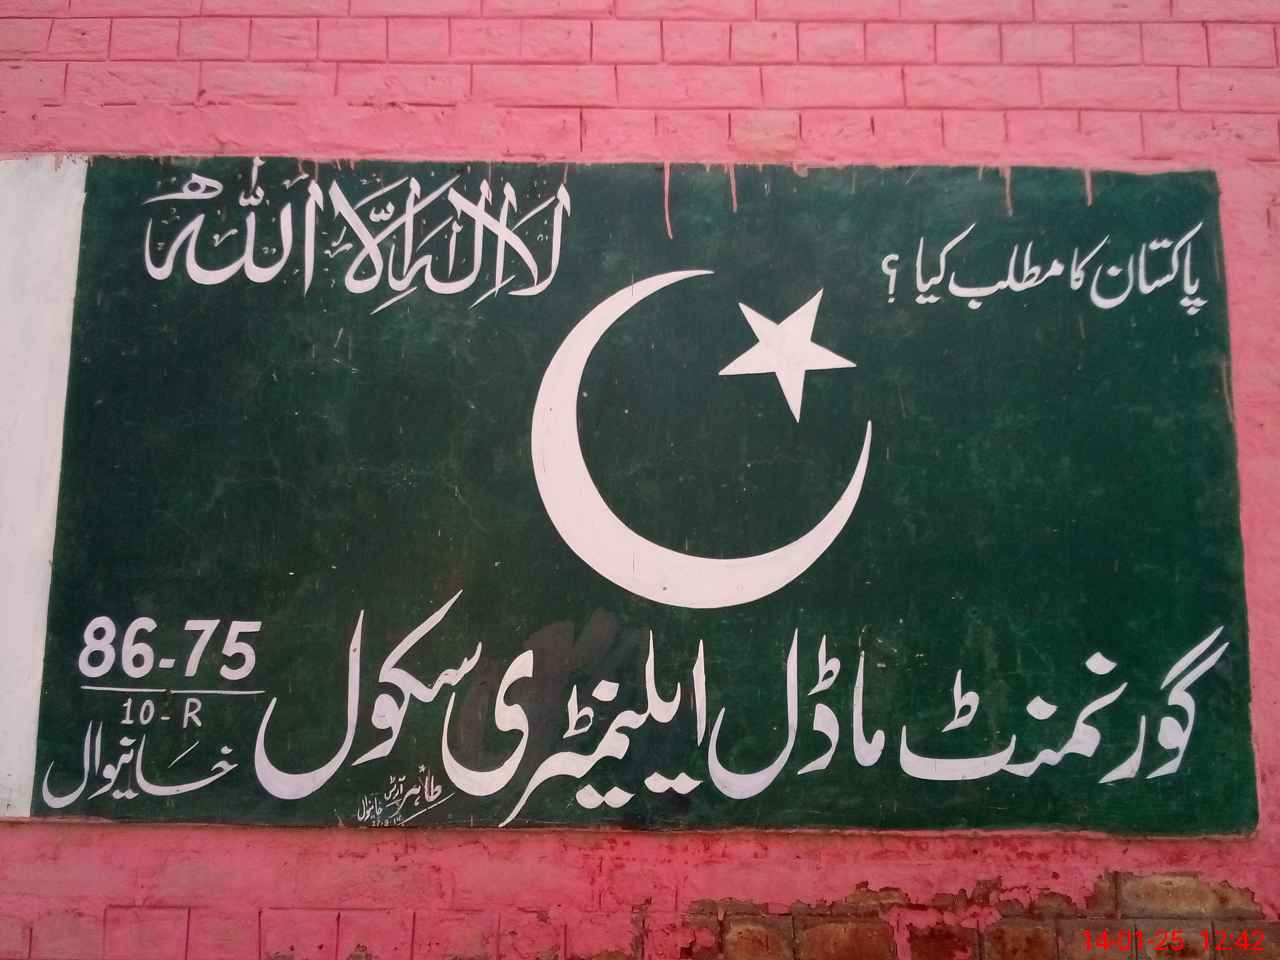 پاکستان کا مطلب کیا ؟
لا الہ الا اللہ
گورنمنٹ ماڈل ایلیمنٹری سکول
86-75
10-R
خانیوال
طاہر آرٹس
خانیوال
14-01-25 12:42